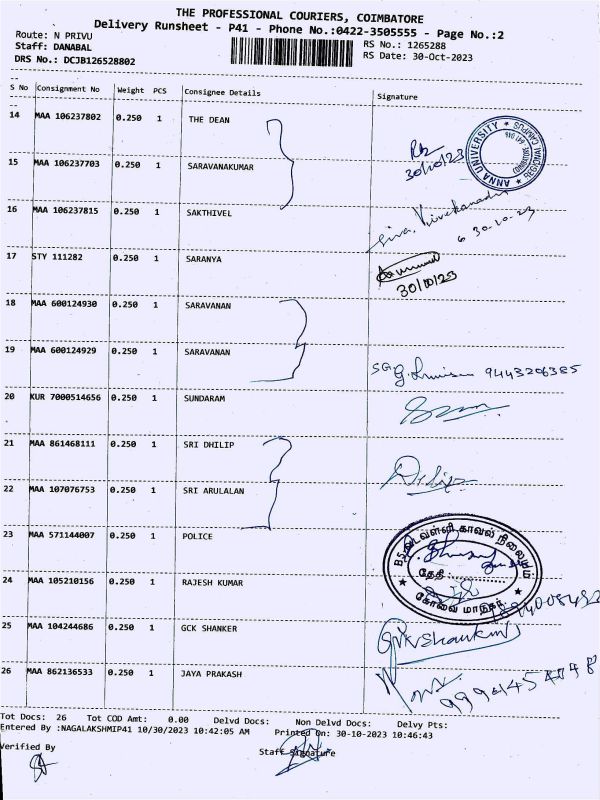 THE PROFESSIONAL COURIERS, COIMBATORE
Delivery Runsheet - P41 - Phone No.:0422-3505555 - Page No.:2
Route: N PRIVU
RS No.: 1265288
Staff: DANABAL
RS Date: 30-Oct-2023
DRS No.: DCJB126528802
S No Consignment No Weight PCS Consignee Details Signature
14 MAA 106237802 0.250 1 THE DEAN
ANNA UNIVERSITY * REGIONAL CAMPUS *
30/10/23
15 MAA 106237703 0.250 1 SARAVANAKUMAR
16 MAA 106237815 0.250 1 SAKTHIVEL
30.10.23
17 STY 111282 0.250 1 SARANYA
30/10/23
18 MAA 600124930 0.250 1 SARAVANAN
19 MAA 600124929 0.250 1 SARAVANAN
9443206385
20 KUR 7000514656 0.250 1 SUNDARAM
21 MAA 861468111 0.250 1 SRI DHILIP
Dilip
22 MAA 107076753 0.250 1 SRI ARULALAN
23 MAA 571144007 0.250 1 POLICE
காவல் நிலையம்
தேதி
கோவை மாநகர்
24 MAA 105210156 0.250 1 RAJESH KUMAR
25 MAA 104244686 0.250 1 GCK SHANKER
26 MAA 862136533 0.250 1 JAYA PRAKASH
Tot Docs: 26 Tot COD Amt: 0.00 Delvd Docs: Non Delvd Docs: Delvy Pts:
Entered By :NAGALAKSHMIP41 10/30/2023 10:42:05 AM Printed On: 30-10-2023 10:46:43
Verified By Staff Signature